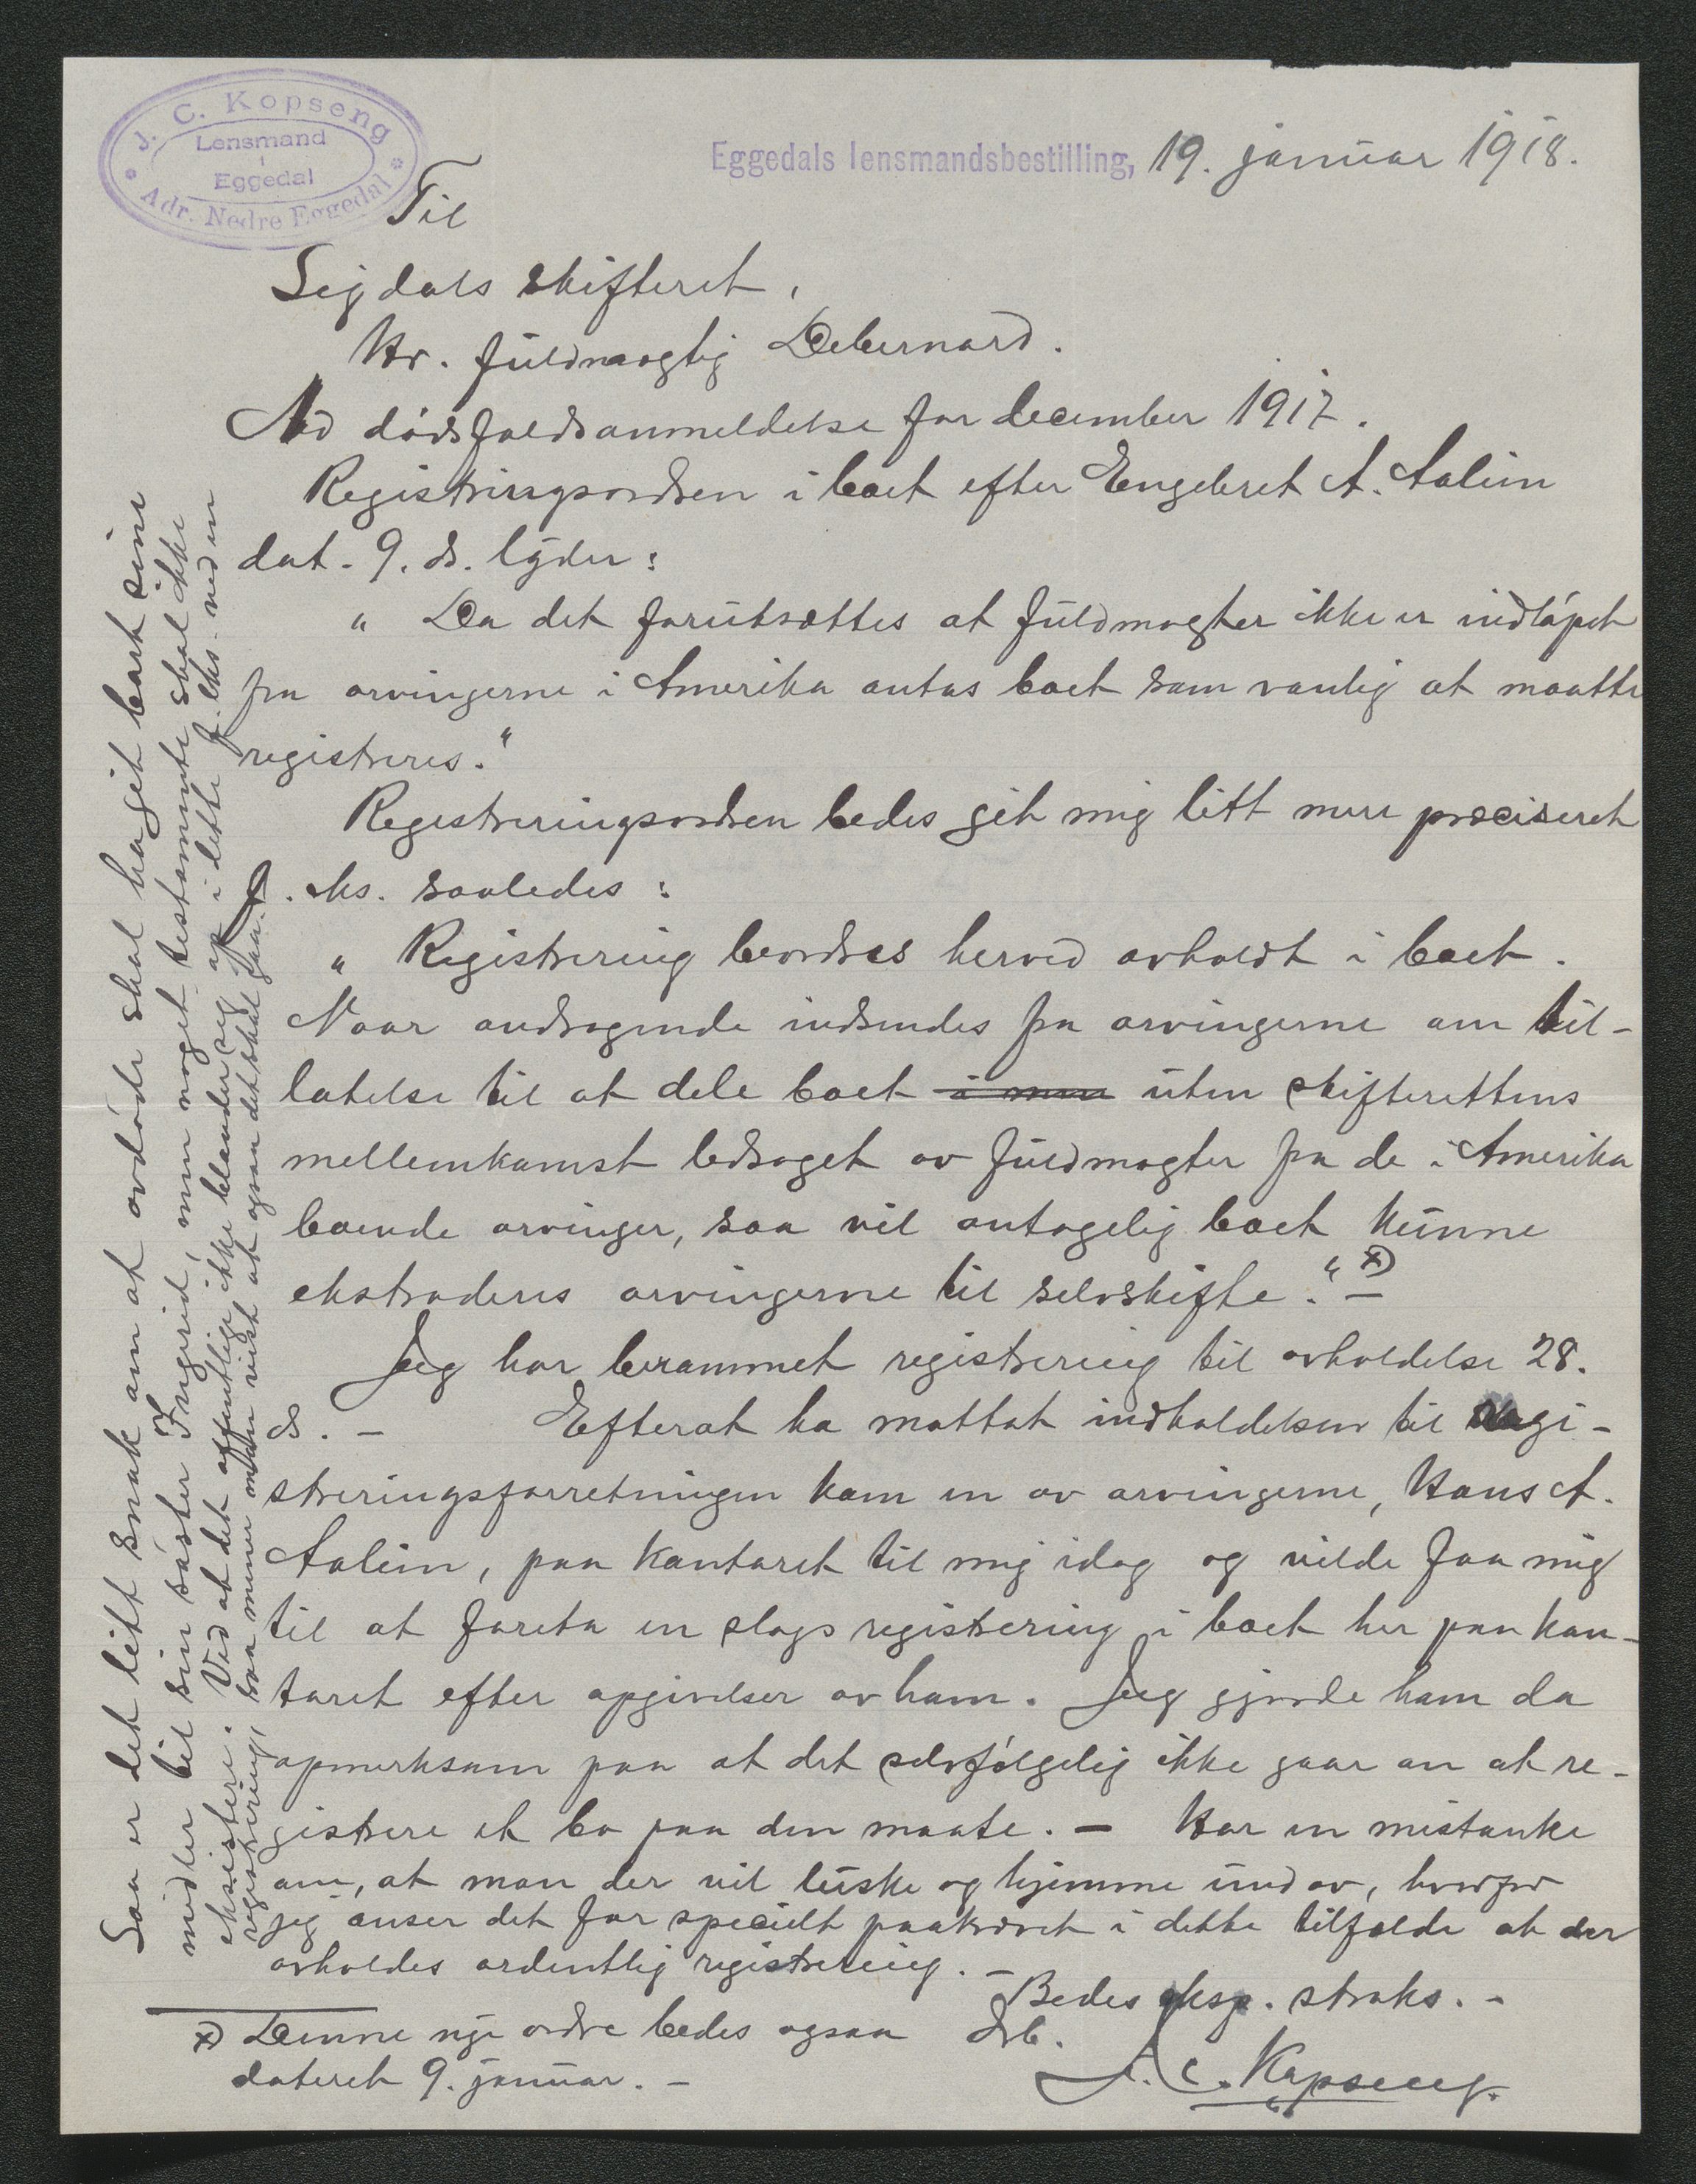 J. C. Kopseng
Lensmand
i
Eggedal
Adr. Nedre Eggedal
Eggedals lensmandsbestilling, 19. januar 1918.
Til
Sigdals skifteret,
Hr. fuldmægtig Debernard.
Ad dödsfaldsanmeldelse for december 1917.
Registringsordren i boet efter Engebret A. Aalien
dat. 9. ds. lyder:
" Da det forutsættes at fuldmagter ikke er indlöpet
fra arvingerne i Amerika antas boet som vanlig at maatte
registreres."
Registreringsordren bedes git mig litt mere præciseret
f. eks. saaledes:
" Registrering beordres herved avholdt i boet.
Naar andragende indsendes fra arvingerne om til-
latelse til at dele boet i min uten skifterettens
mellemkomst ledsaget av fuldmagter fra de i Amerika
boende arvinger, saa vil antagelig boet kunne
ekstraderes arvingerne til selvskifte." x)
Jeg har berammet registrering til avholdelse 28.
ds. - Efterat ha mottat indkaldelsen til regi-
streringsforretningen kom en av arvingerne, Hans A.
Aalien, paa kontoret til mig idag og vilde faa mig
til at foreta en slags registrering i boet her paa kon-
toret efter opgivelser av ham. Jeg gjorde ham da
opmerksom paa at det selvfölgelig ikke gaar an at re-
gistrere et bo paa den maate. - Har en mistanke
om, at man der vil luske og hjemme und av, hvorfor
jeg anser det for specielt paakrævet i dette tilfælde at der
avholdes ordentlig registrering. -
Bedes eksp. straks. -
Ærb.
J. C. Kopseng.
x) Denne nye ordre bedes ogsaa
dateret 9. januar. -
Saa er det litt snak om at avdöde skal ha git bort sine
midler til sin söster Ingerid, men noget testamente skal ikke
eksistere. Ved at det offentlige ikke blander seg op i dette f. eks. ved en
registrering, saa mener man vist at ogsaa det skal gaa.